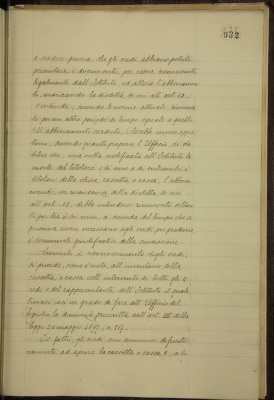 932
a cadere prima che gli eredi abbiano potuto
presentare i documenti per essere riconosciuti
legalmente dall'Istituto, ed allora l'abbonamen
to, mancando la disdetta di cui all'art. 13,
s'intende, secondo le norme attuali, rinnova
to per un altro periodo di tempo eguale a quello
dell'abbonamento scaduto. Sarebbe invece oppor
tuno, secondo quanto propone l'Ufficio, di sta
bilire che, una volta notificata all'Istituto la
morte del titolare o di uno o di entrambi i
titolari della stessa cassetta o cassa, l'abbona
mento, in mancanza della disdetta di cui
all'art. 13, debba intendersi rinnovato soltan
to per tre o sei mesi, a seconda del tempo che si
presuma essere necessario agli eredi per produrre
i documenti giustificativi della successione.
Avvenuto il riconoscimento degli eredi,
si procede, come è noto, all'inventario della
cassetta o cassa coll'intervento di tutti gli e
redi e del rappresentante dell'Istituto, il quale
trovasi così in grado di fare all'Ufficio del
Registro la denuncia prescritta dall'art.
legge 20 maggio 1897, n. 217.
Ciò fatto, gli eredi sono ammessi
ad aprire la cassetta o cassa, e